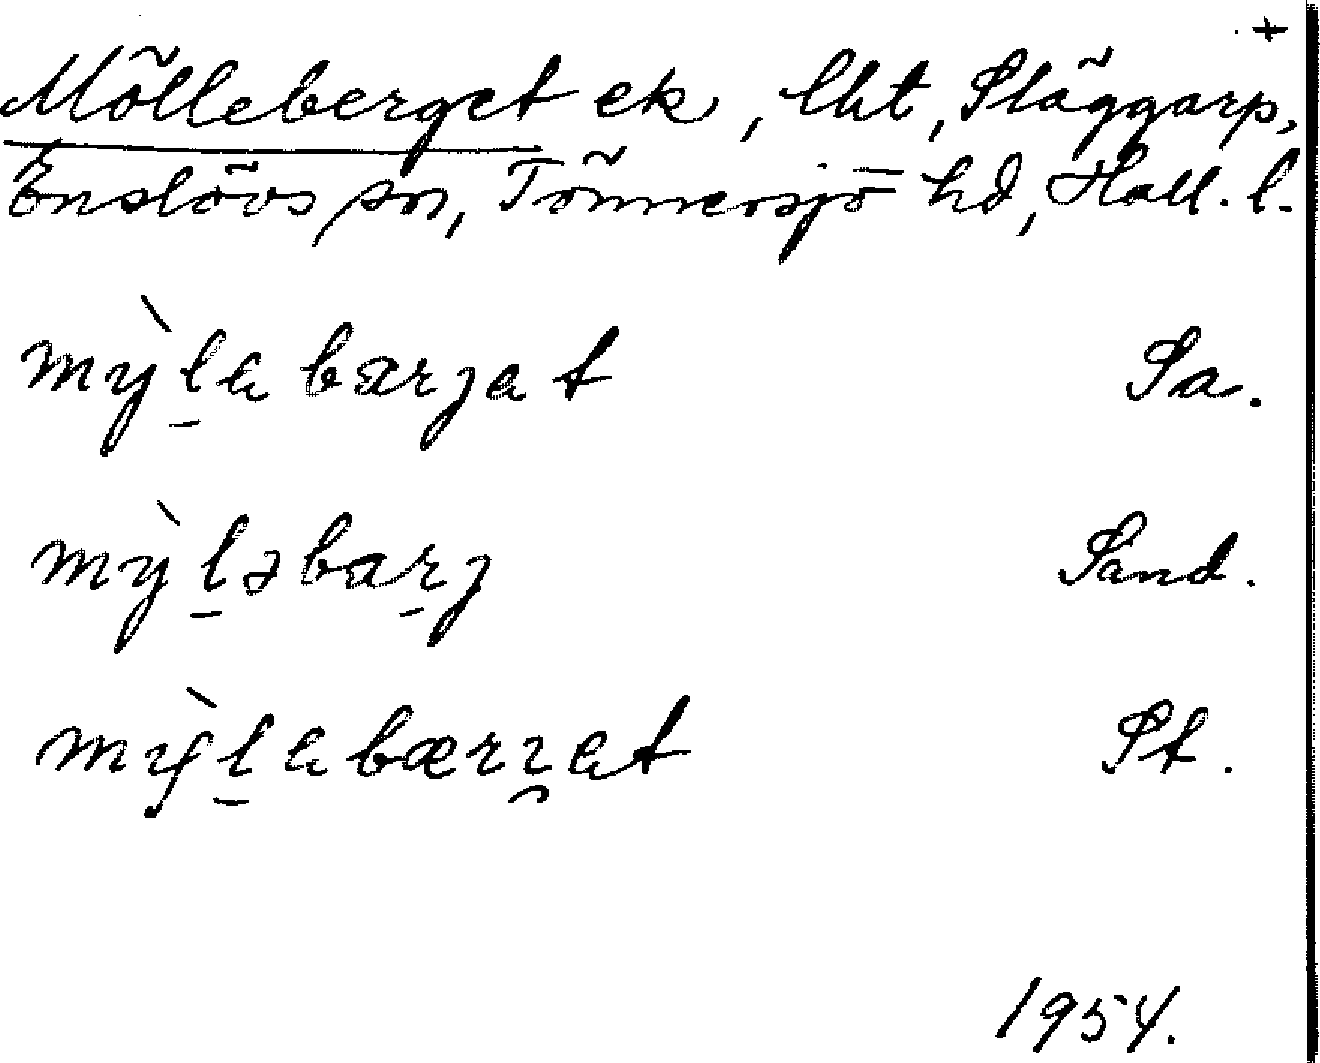 +
Mölleberget ek, lht, Släggarp,
Enslövs sn, Tönnersjö hd, Hall. l.
mỳl̠abærjat Sa.
mỳl̠əbar̠j Sand.
mỳl̠abærɿ̯at St.
1954.